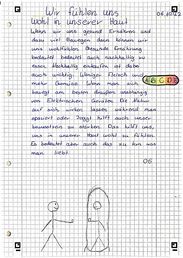 Wir fühlen uns
wohl in unserer Haut
Wenn wir uns gesund Ernähren und
dazu viel Bewegen dann können wir
uns wohlfühlen. Gesunde Ernährung
bedeutet nachhaltig zu
essen. Nachhaltig einkaufen ist dabei
auch wichtig. Weniger Fleisch und
mehr Gemüse. Wenn man sich
bewegt am besten draußen unabhängig
von Elektrischen Geräten. Die Natur
auf sich wirken lassen während man
spaziert oder Joggt hilft auch unser
bewusstsein zu stärken. Das hilft uns,
uns in unserer Haut wohl zu fühlen.
Es bedeutet aber auch das zu tun was
man liebt.